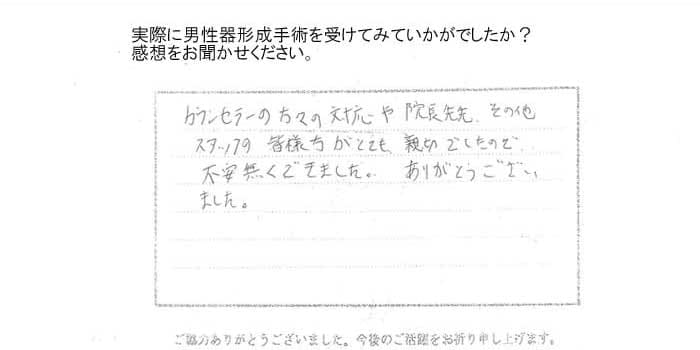 実際に男性器形成手術を受けてみていかがでしたか？
感想をお聞かせください。
カウンセラーの方々の対応や院長先生、その他
スタッフの皆様方がとても親切でしたので、
不安無くできました。ありがとうござい
ました。
ご協力ありがとうございました。今後のご活躍をお祈り申し上げます。